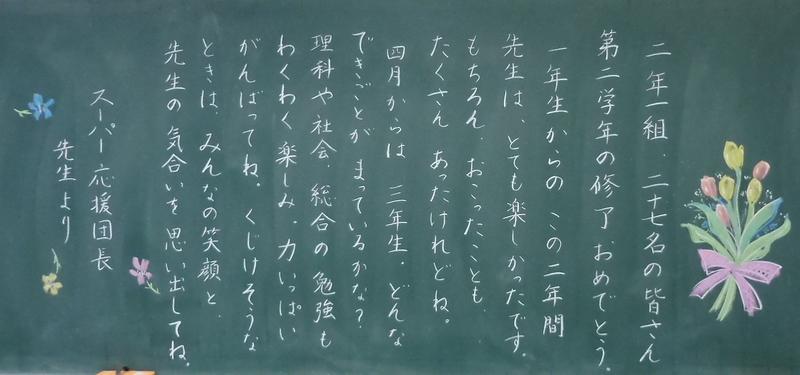 二年一組、二十七名の皆さん
第二学年の修了おめでとう。
一年生からの この二年間
先生は、とても楽しかったです。
もちろん、おこったことも、
たくさん あったけれどね。
四月からは 三年生。どんな
できごとが まっているかな？
理科や社会、総合の勉強も
わくわく楽しみ。力いっぱい
がんばってね。くじけそうな
ときは、みんなの笑顔と、
先生の気合いを思い出してね。
スーパー応援団長
先生より